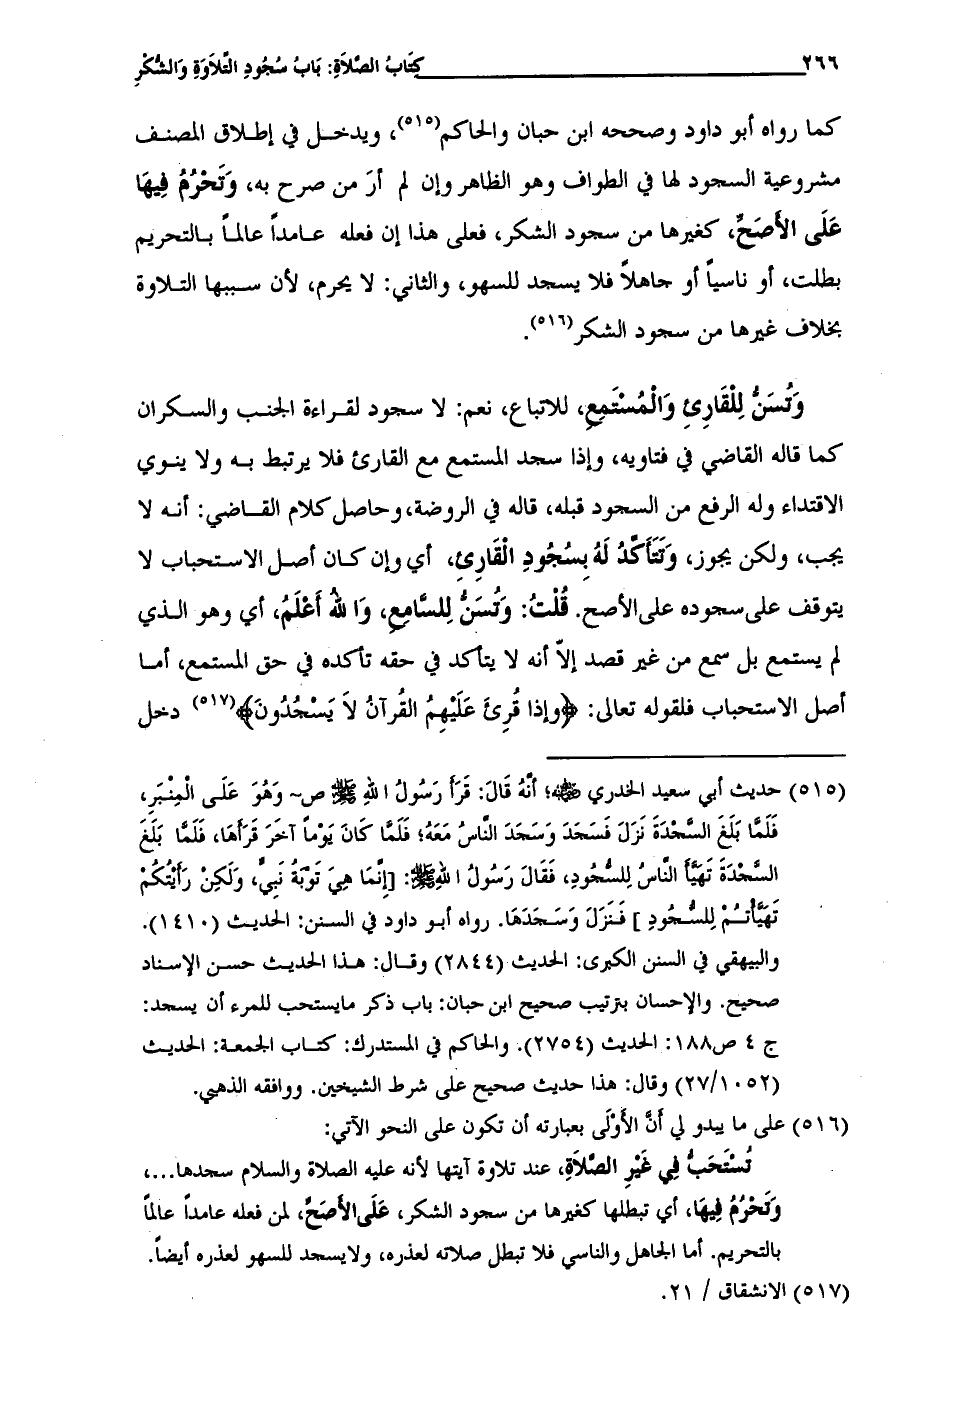 ٢٦٦ كِتَابُ الصَّلاَةِ: بَابُ سُجُودِ التِّلاَوَةِ وَالشُّكْرِ
كما رواه أبو داود وصححه ابن حبان والحاكم(٥١٥)، ويدخل في إطلاق المصنف
مشروعية السجود لها في الطواف وهو الظاهر وإن لم أرَ من صرح به، وَتَحْرُمُ فِيهَا
عَلَى الأَصَحِّ، كغيرها من سجود الشكر، فعلى هذا إن فعله عامداً عالماً بالتحريم
بطلت، أو ناسياً أو جاهلاً فلا يسجد للسهو، والثاني: لا يحرم، لأن سببها التلاوة
بخلاف غيرها من سجود الشكر(٥١٦).
وَتُسَنُّ لِلْقَارِئِ وَالْمُسْتَمِعِ، للاتباع، نعم: لا سجود لقراءة الجنب والسكران
كما قاله القاضي في فتاويه، وإذا سجد المستمع مع القارئ فلا يرتبط به ولا ينوي
الاقتداء وله الرفع من السجود قبله، قاله في الروضة، وحاصل كلام القاضي: أنه لا
يجب، ولكن يجوز، وَتَتَأَكَّدُ لَهُ بِسُجُودِ الْقَارِئِ، أي وإن كان أصل الاستحباب لا
يتوقف على سجوده على الأصح. قُلْتُ: وَتُسَنُّ لِلسَّامِعِ، وَاللهُ أَعْلَمُ، أي وهو الذي
لم يستمع بل سمع من غير قصد إلاّ أنه لا يتأكد في حقه تأكده في حق المستمع، أما
أصل الاستحباب فلقوله تعالى: ﴿وإذا قُرِئَ عَلَيْهِمُ القُرآنُ لاَ يَسْجُدُونَ﴾(٥١٧) دخل
(٥١٥) حديث أبي سعيد الخدري ﷺ؛ أَنَّهُ قَالَ: قَرَأَ رَسُولُ اللهِ ﷺ ص~ وَهُوَ عَلَى الْمِنْبَرِ،
فَلَمَّا بَلَغَ السَّجْدَةَ نَزَلَ فَسَجَدَ وَسَجَدَ النَّاسُ مَعَهُ؛ فَلَمَّا كَانَ يَوْماً آخَرَ قَرَأَهَا، فَلَمَّا بَلَغَ
السَّجْدَةَ تَهَيَّأَ النَّاسُ لِلسُّجُودِ، فَقَالَ رَسُولُ اللهِ ﷺ: [إِنَّمَا هِيَ تَوْبَةُ نَبِيٍّ، وَلَكِنْ رَأَيْتُكُمْ
تَهَيَّأْتُمْ لِلسُّجُودِ] فَنَزَلَ وَسَجَدَهَا. رواه أبو داود في السنن: الحديث (١٤١٠).
والبيهقي في السنن الكبرى: الحديث (٢٨٤٤) وقال: هذا الحديث حسن الإسناد
صحيح. والإحسان بترتيب صحيح ابن حبان: باب ذكر مايستحب للمرء أن يسجد:
ج ٤ ص١٨٨: الحديث (٢٧٥٤). والحاكم في المستدرك: كتاب الجمعة: الحديث
(٢٧/١٠٥٢) وقال: هذا حديث صحيح على شرط الشيخين. ووافقه الذهبي.
(٥١٦) على ما يبدو لي أَنَّ الأَوْلَى بعبارته أن تكون على النحو الآتي:
تُسْتَحَبُّ فِي غَيْرِ الصَّلاَةِ، عند تلاوة آيتها لأنه عليه الصلاة والسلام سجدها...،
وَتَحْرُمُ فِيهَا، أي تبطلها كغيرها من سجود الشكر، عَلَى الأَصَحِّ، لمن فعله عامداً عالماً
بالتحريم. أما الجاهل والناسي فلا تبطل صلاته لعذره، ولايسجد للسهو لعذره أيضاً.
(٥١٧) الانشقاق / ٢١.